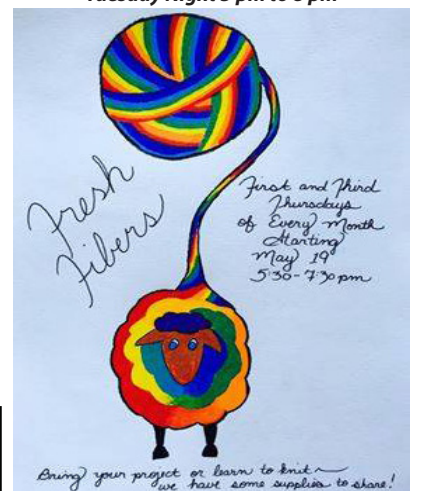 Tuesday Night 5 pm to 8 pm
Fresh
Fibers
First and Third
Thursdays
of Every Month
Starting
May 19
5:30-7:30pm
Bring your project or learn to knit~
we have some supplies to share!